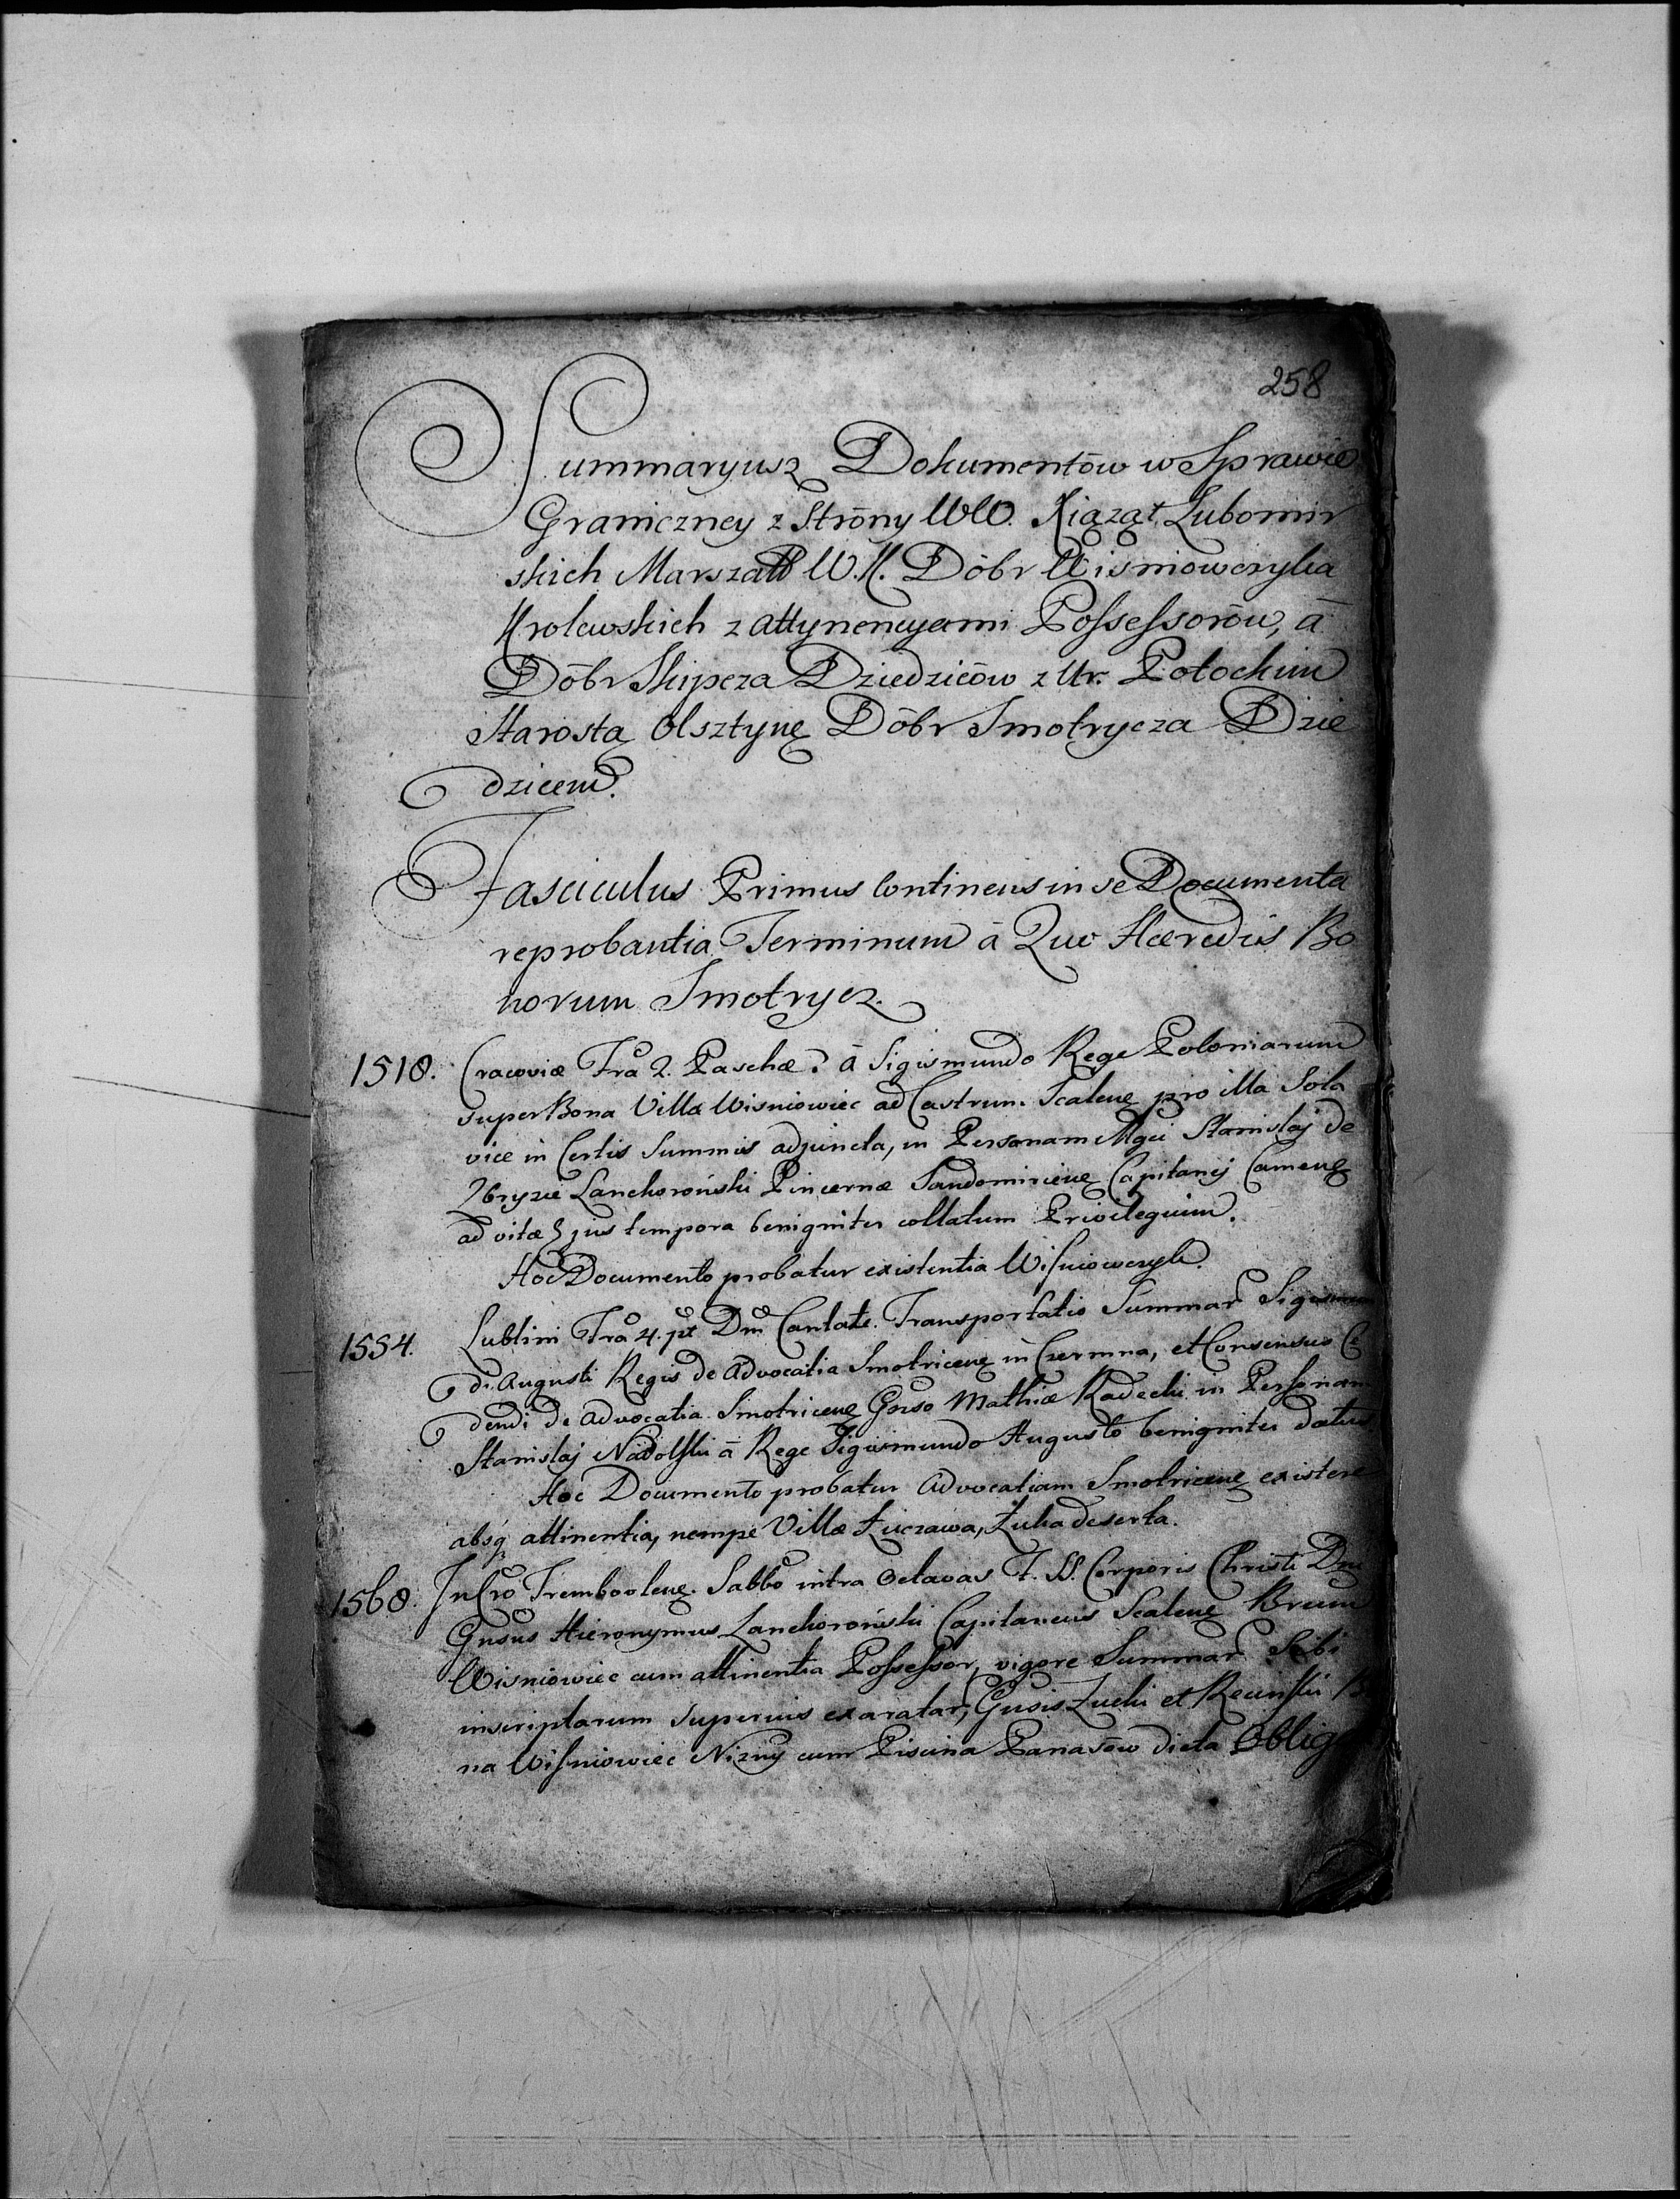 258
Summaryusz Dokumentōw w Sprawie
Graniczney z Strōny WW. Xiąząt Lubomir
skich Marszałł W. K. Dōbr Wisniowczyka
Krolewskich z attynencyami Possessorōw, ā
Dōbr Skipcza Dziedzicōw z Ur. Potockim
Starostą Olsztyn Dōbr Smotrycza Dzie
dzicem.
Fasciculus Primus Continens in se Documenta
reprobantia Terminum ā Quo Hæredis Bo
norum Smotrycz.
1518. Cracoviæ Fra 2. Paschæ. ā Sigismundo Rege Poloniarum
super Bona Villæ Wisniowiec ad Castrum Scalen pro illa Sola
vice in Certis Summis adjuncta, in Personam Mgci Stanislaj de
Zbryzie Lanckoroński Pincernæ Sandomirien Capitanej Camen
ad vitæ ejus tempora benigniter collatum Privilegium.
Hoc Documento probatur existentia Wisniowczyk.
1554. Lublini Fra 4. pt Dm Cantate. Transportatio Summar Sigismun
di Augusti Regis de Advocatia Smotricen in Czermna, et Consensus Ce
dendi de Advocatia Smotricen Gnso Mathiæ Radecki in Personam
Stanislaj Nadolski ā Rege Sigismundo Augusto benigniter datus
Hoc Documento probatur Advocatiam Smotricen existere
absq attinentia, nempe Villæ Łuczawa, Łuka deserta.
1568. In Cro Trembovlen. Sabbo intra Octavas F. SS. Corporis Christi Dni
Gnsus Hieronymus Lanckoroński Capitaneus Scalen Brum
Wisniowiec cum attinentia Possessor, vigore Summar Sibi
inscriptarum superius exaratar, Gnsis Zucki et Recinski Bo
na Wisniowiec Nizny cum Piscina Panasōw dicta Oblig